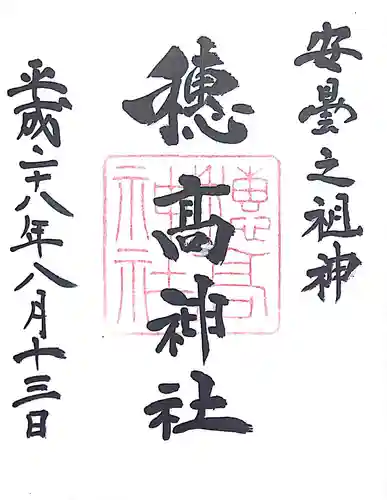 安曇之祖神
穂髙神社
平成二十八年八月十三日
穂髙
神社